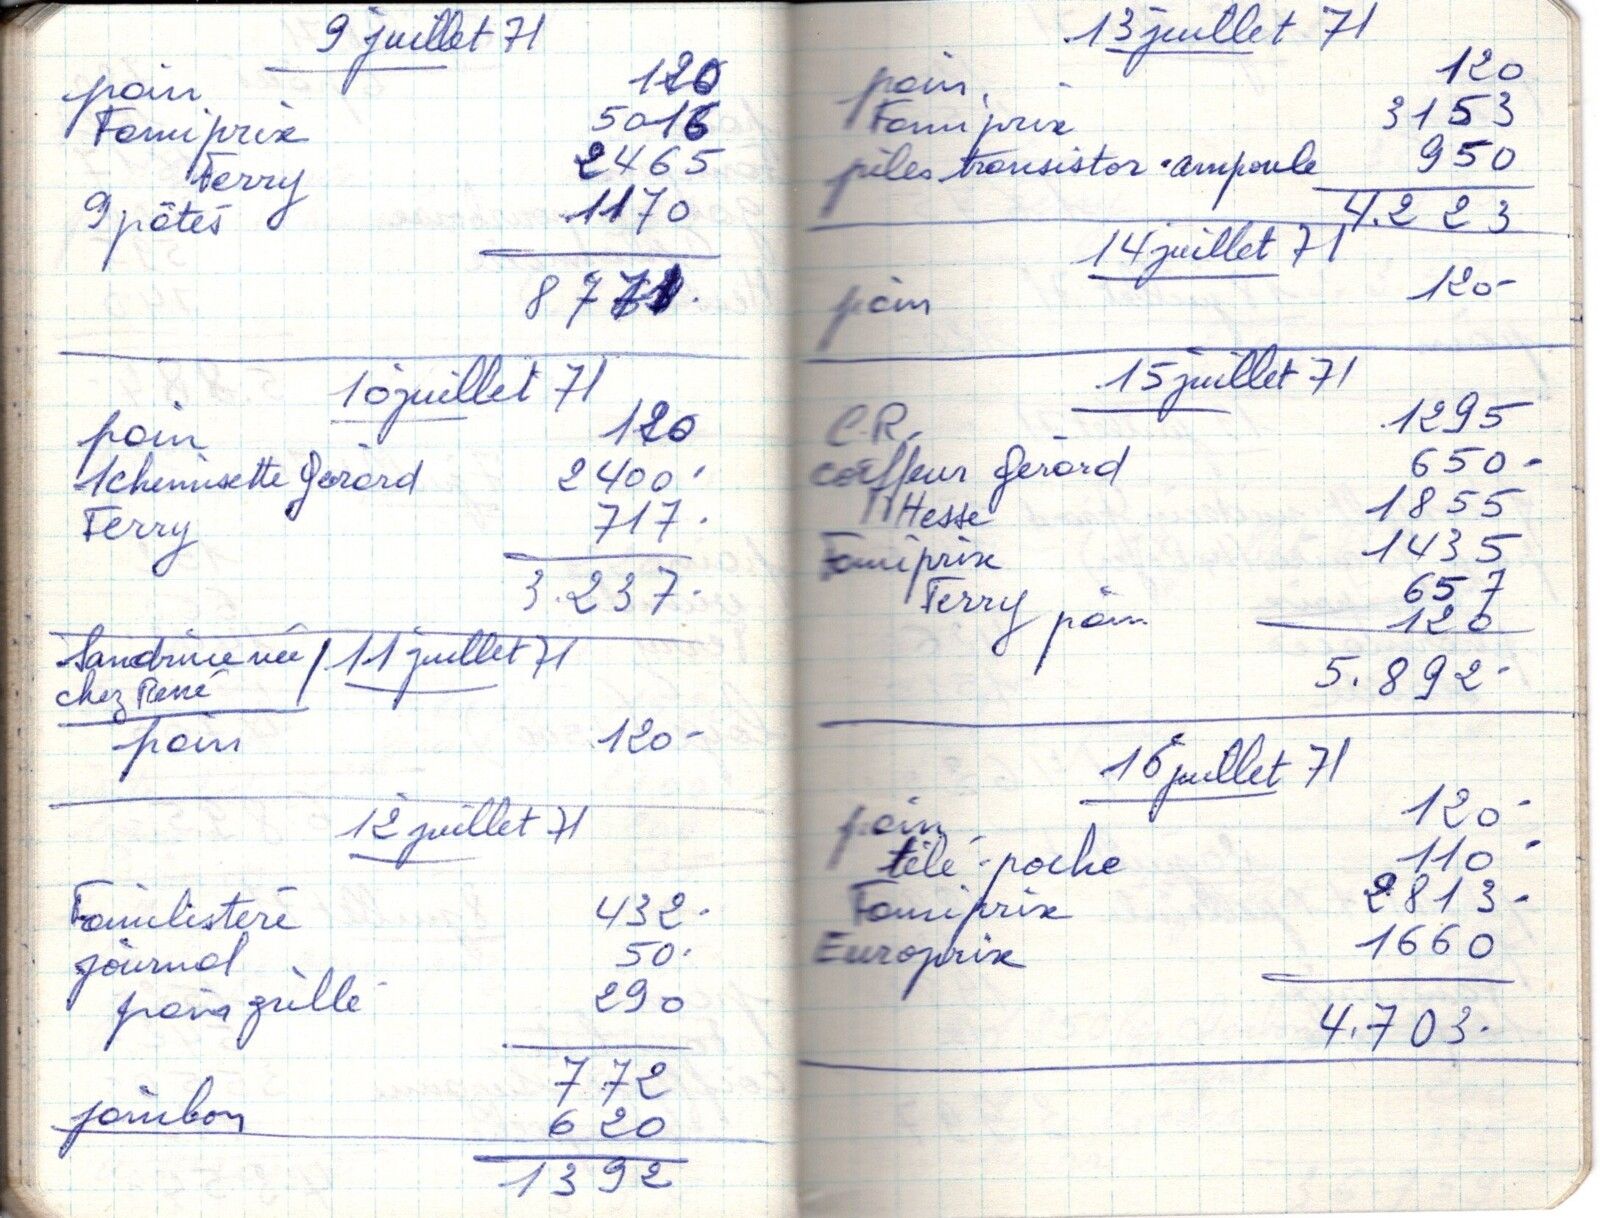 9 juillet 71
pain 120
Famiprix 5016
Ferry 2465
9 pâtés 1170
8771.
10 juillet 71
pain 120
1 chemisette Gérard 2400.
Ferry 717.
3.237.
Sandrine née / 11 juillet 71
chez René
pain 120-
12 juillet 71
Familistère 432.
journal 50.
pain grillé 290
772
jambon 620
1392
13 juillet 71
pain 120
Famiprix 3153
piles transistor - ampoule 950
4.223
14 juillet 71
pain 120-
15 juillet 71
C.R. 1295
coiffeur Gérard 650-
Hesse 1855
Famiprix 1435
Ferry 657
pain 120
5.892-
16 juillet 71
pain 120-
télé-poche 110-
Famiprix 2813-
Europrix 1660
4.703-